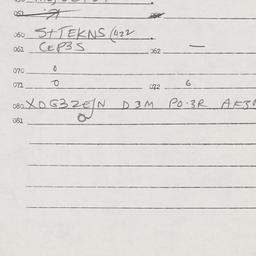 051
060 S+TEKNS
061 CEP3S 062 —
070 0
071 0 072 6
080 XDG3ZEJN D3M PO.3R
081